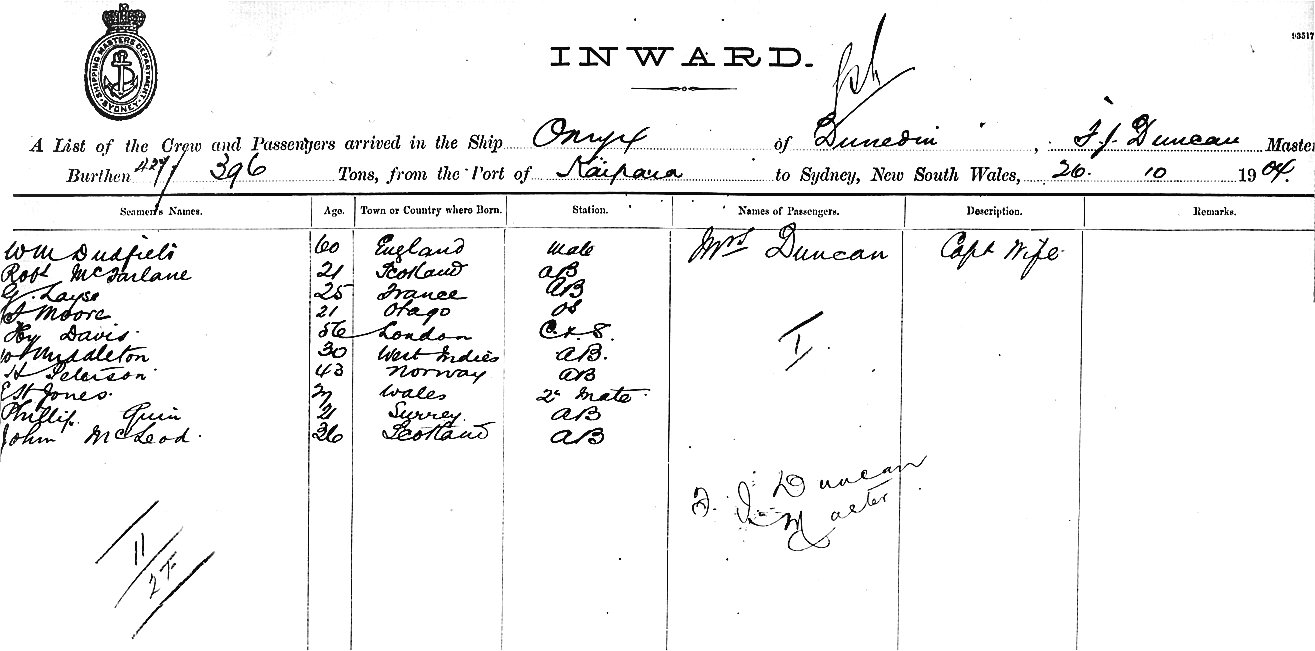 93517
SHIPPING MASTERS DEPARTMENT SYDNEY
INWARD.
A List of the Crew and Passengers arrived in the Ship Onyx of Dunedin, F. J. Duncan Master
Burthen 427/ 396 Tons, from the Port of Kaipara to Sydney, New South Wales, 26. 10 1904.
Seamen's Names. Age. Town or Country where Born. Station. Names of Passengers. Description. Remarks.
Wm Dudfield 60 England Mate Mrs Duncan Capt Wife
Robt McFarlane 21 Scotland AB
G. Layse 25 France AB
Moore 21 Otago OS
Hy Davis 56 London C & S.
W Myddleton 30 West Indies AB.
H Peterson 43 Norway AB
E H Jones. Wales 2d Mate
Phillip Guin 21 Surrey AB
John McLeod. 36 Scotland AB
I.
F. J. Duncan
Master
11